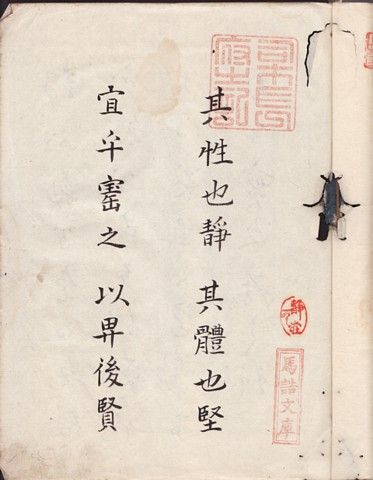 其性也靜 其體也堅
宜乎之 以畀後賢
文庫